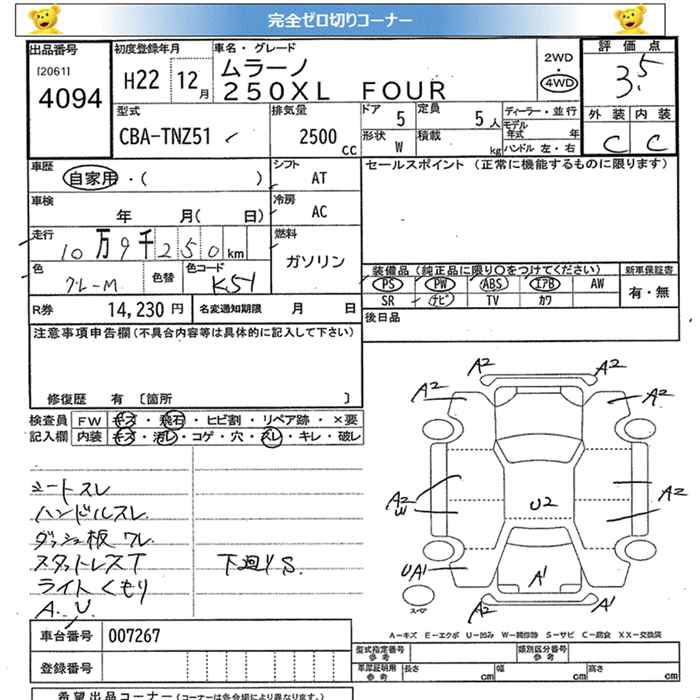 完全ゼロ切りコーナー
出品番号
[2061]
4094
初度登録年月
H22 12月
車名・グレード
ムラーノ
250XL FOUR
2WD
・
4WD
評価点
3.5
型式
CBA-TNZ51
排気量
2500 cc
ドア 5
定員 5人
形状 W
積載 kg
ディーラー・並行
モデル年式 年
ハンドル 左・右
外装 内装
C C
車歴
自家用・( )
シフト AT
セールスポイント (正常に機能するものに限ります)
車検
年 月( 日)
冷房 AC
走行
10万9千250km
燃料
ガソリン
色
グレーM
色替
色コード
K51
装備品(純正品に限り○をつけてください)
新車保証書
PS PW ABS エアB AW
有・無
SR ナビ TV カワ
R券 14,230円
名変通知期限 月 日
後日品
注意事項申告欄(不具合内容等は具体的に記入して下さい)
修復歴 有 [箇所 ]
検査員 FW キズ・飛石・ヒビ割・リペア跡・×要
記入欄 内装 キズ・汚レ・コゲ・穴・スレ・キレ・破レ
シートスレ
ハンドルスレ
ダッシュ板ワレ
スタットレスT
下廻りS.
ライトくもり
A. U.
A2 A2
A2 A2
A2
W
U2
A2
UA1
A1
A2 A1
スペア
A-キズ E-エクボ U-凹み W-補修跡 S-サビ C-腐食 XX-交換済
車台番号 007267
型式指定番号
参考
類別区分番号
参考
登録番号
車庫証明用
参考
長さ cm
幅 cm
高さ cm
希望出品コーナー(コーナーは各会場により異なります。)